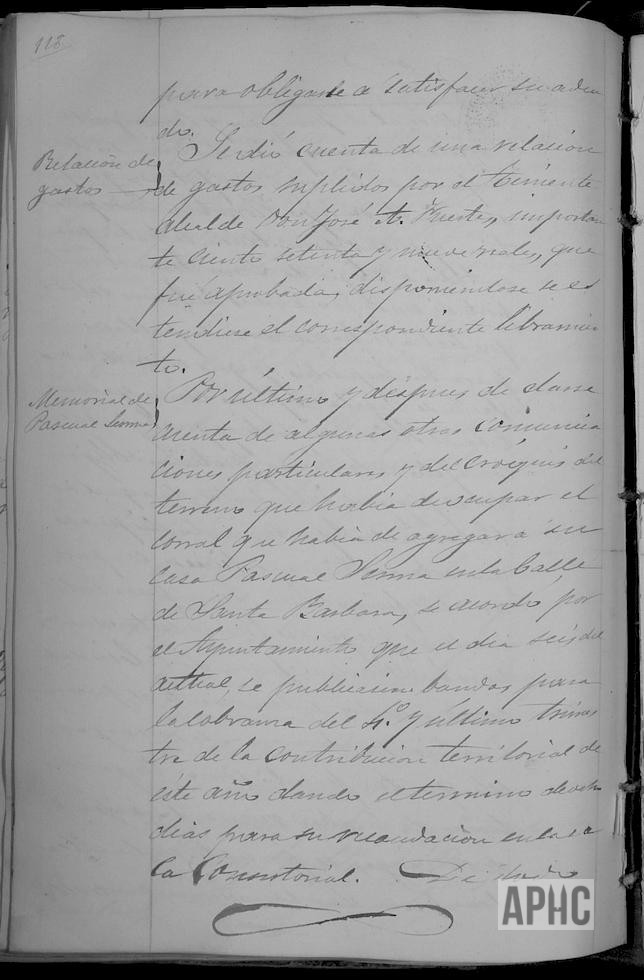 118
para obligarle a satisfacer su adeu
do.
Relación de
gastos
Se dió cuenta de una relación
de gastos suplidos por el teniente
alcalde Don José A. Fuertes, importan
te ciento setenta y nueve reales, que
fué aprobada, disponiendose se es
tendiese el correspondiente libramien
to.
Memorial de
Pascual
Por último y despues de darse
cuenta de algunas otras comunica
ciones particulares y del cróquis del
terreno que habia de ocupar el
corral que habia de agregar á su
casa Pascual en la Calle
de Santa Barbara, se acordó por
el Ayuntamiento que el dia seis del
actual, se publicasen bandos para
la cobranza del 4.º y último trimes
tre de la contribucion territorial de
éste año dando el termino de ocho
dias para su recaudacion en la ca
sa Consistorial.
APHC